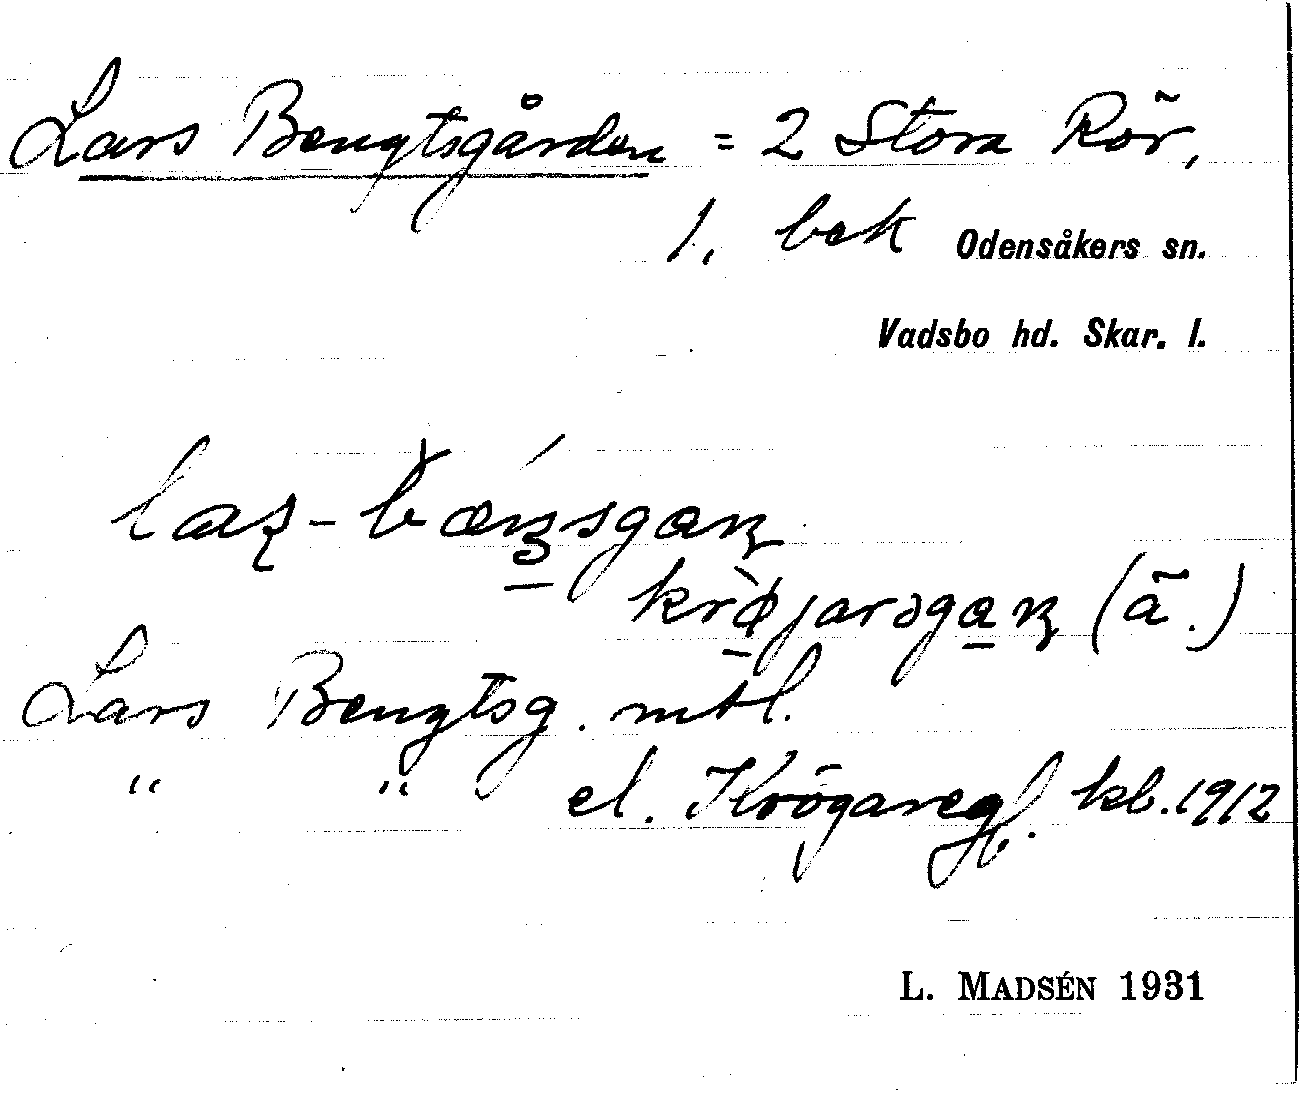 Lars Bengtsgården = 2 Stora Rör,
1. bek Odensåkers sn.
Vadsbo hd. Skar. l.
krø̀jarəgaɳ (ä.)
Lars Bengtsg. mtl.
" " el. Krögareg. kb. 1912
L. MADSÉN 1931